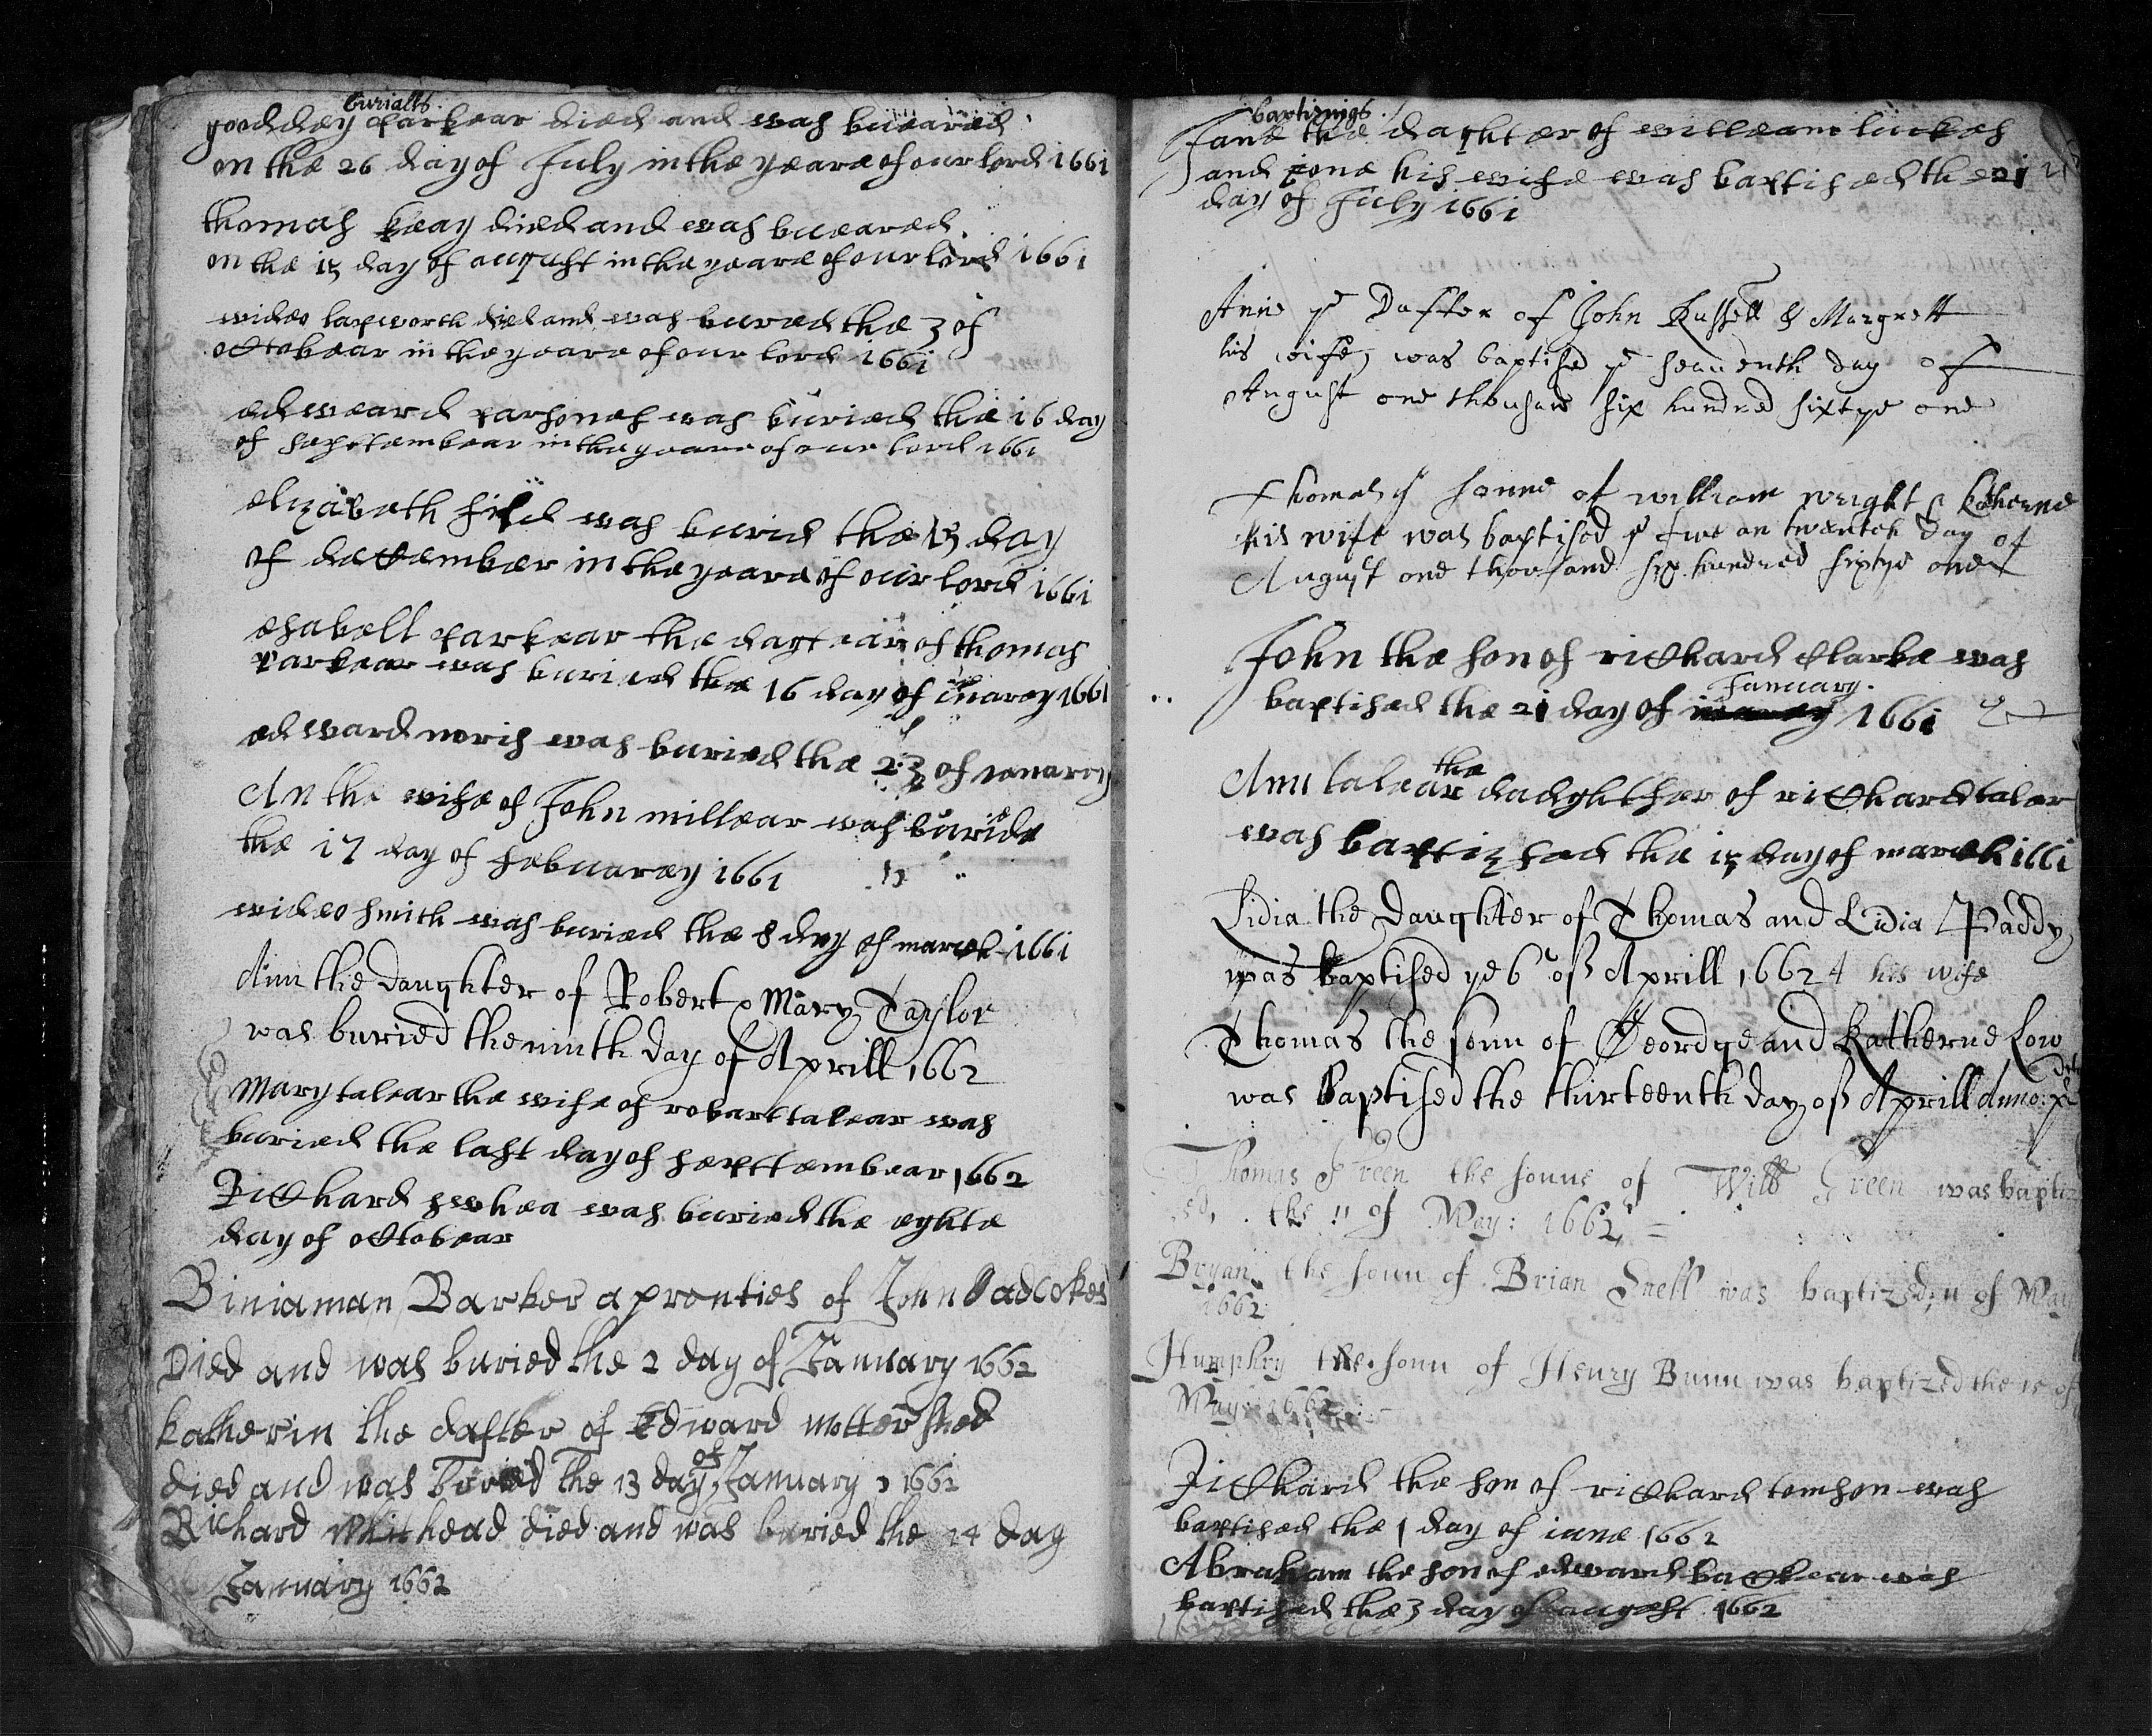 burialls
gooddey parkear died and was buearied
on the 26 day of July in the yeare of our lord 1661
thomas keay died and was buearied
on the 15 day of august in the yeare of our lord 1661
wideo lapworth died and was buried the 3 of
octobear in the yeare of our lord 1661
edweard parsones was buried the 16 day
of septembear in the yeare of our lord 1661
elizabeth fild was burid the 13 day
of december in the yeare of our lord 1661
esabell parkear the daytear of thomas
parkear was buried the 16 day of 1661
edward noris was buried the 23 of ianarey
An the wife of John millear was buride
the 17 day of febuarey 1661
wideo smith was buried the 8 day of march 1661
Ann the daughter of Robert & Mary Taylor
was buried the ninth day of Aprill 1662
Mary talear the wife of robart talear was
buried the last day of septtembear 1662
Rickhard was buried the eghte
day of octobear
Biniaman Barker a prenties of John Badcokes
Died and was buried the 2 day of January 1662
katherin the dafter of Edward mottershed
died and was buried the 13 day of January 1662
Richard Whithead died and was buried the 24 day
January 1662
baptisings
Jane the daughter of willeam luckes
and jone his wife was baptised the 21
day of July 1661
Anne ye Dafter of John Russell & Margrett
his wife was baptised ye seauenth day of
August one thousand six hundred sixtye one
Thomas ye sonne of william wright & katherne
his wife was baptised ye two an twenteh day of
August one thousand six hundred sixtye one
John the son of rickhard clarke was
baptised the 21 day of January 1661
Ann talear the daughther of rickhard talear
was baptized the 15 day of march 1661
Lidia the Daughter of Thomas and Lidia Paddy
was baptised ye 6 of Aprill 1662 his wife
Thomas the sonn of Geordge and Katherne Low
was Baptised the thirteenth day of Aprill Anno
Thomas Green the sonne of Will Green was baptiz
ed, the 11 of May: 1662
Bryan the sonn of Brian Snell was baptized 11 of May
1662
Humphry the sonn of Henry Bunn was baptized the 18 of
May 1662
Rickhard the son of rickhard tomson was
baptised the 1 day of iune 1662
Abraham the son of edward backear was
baptised the 3 day of august 1662